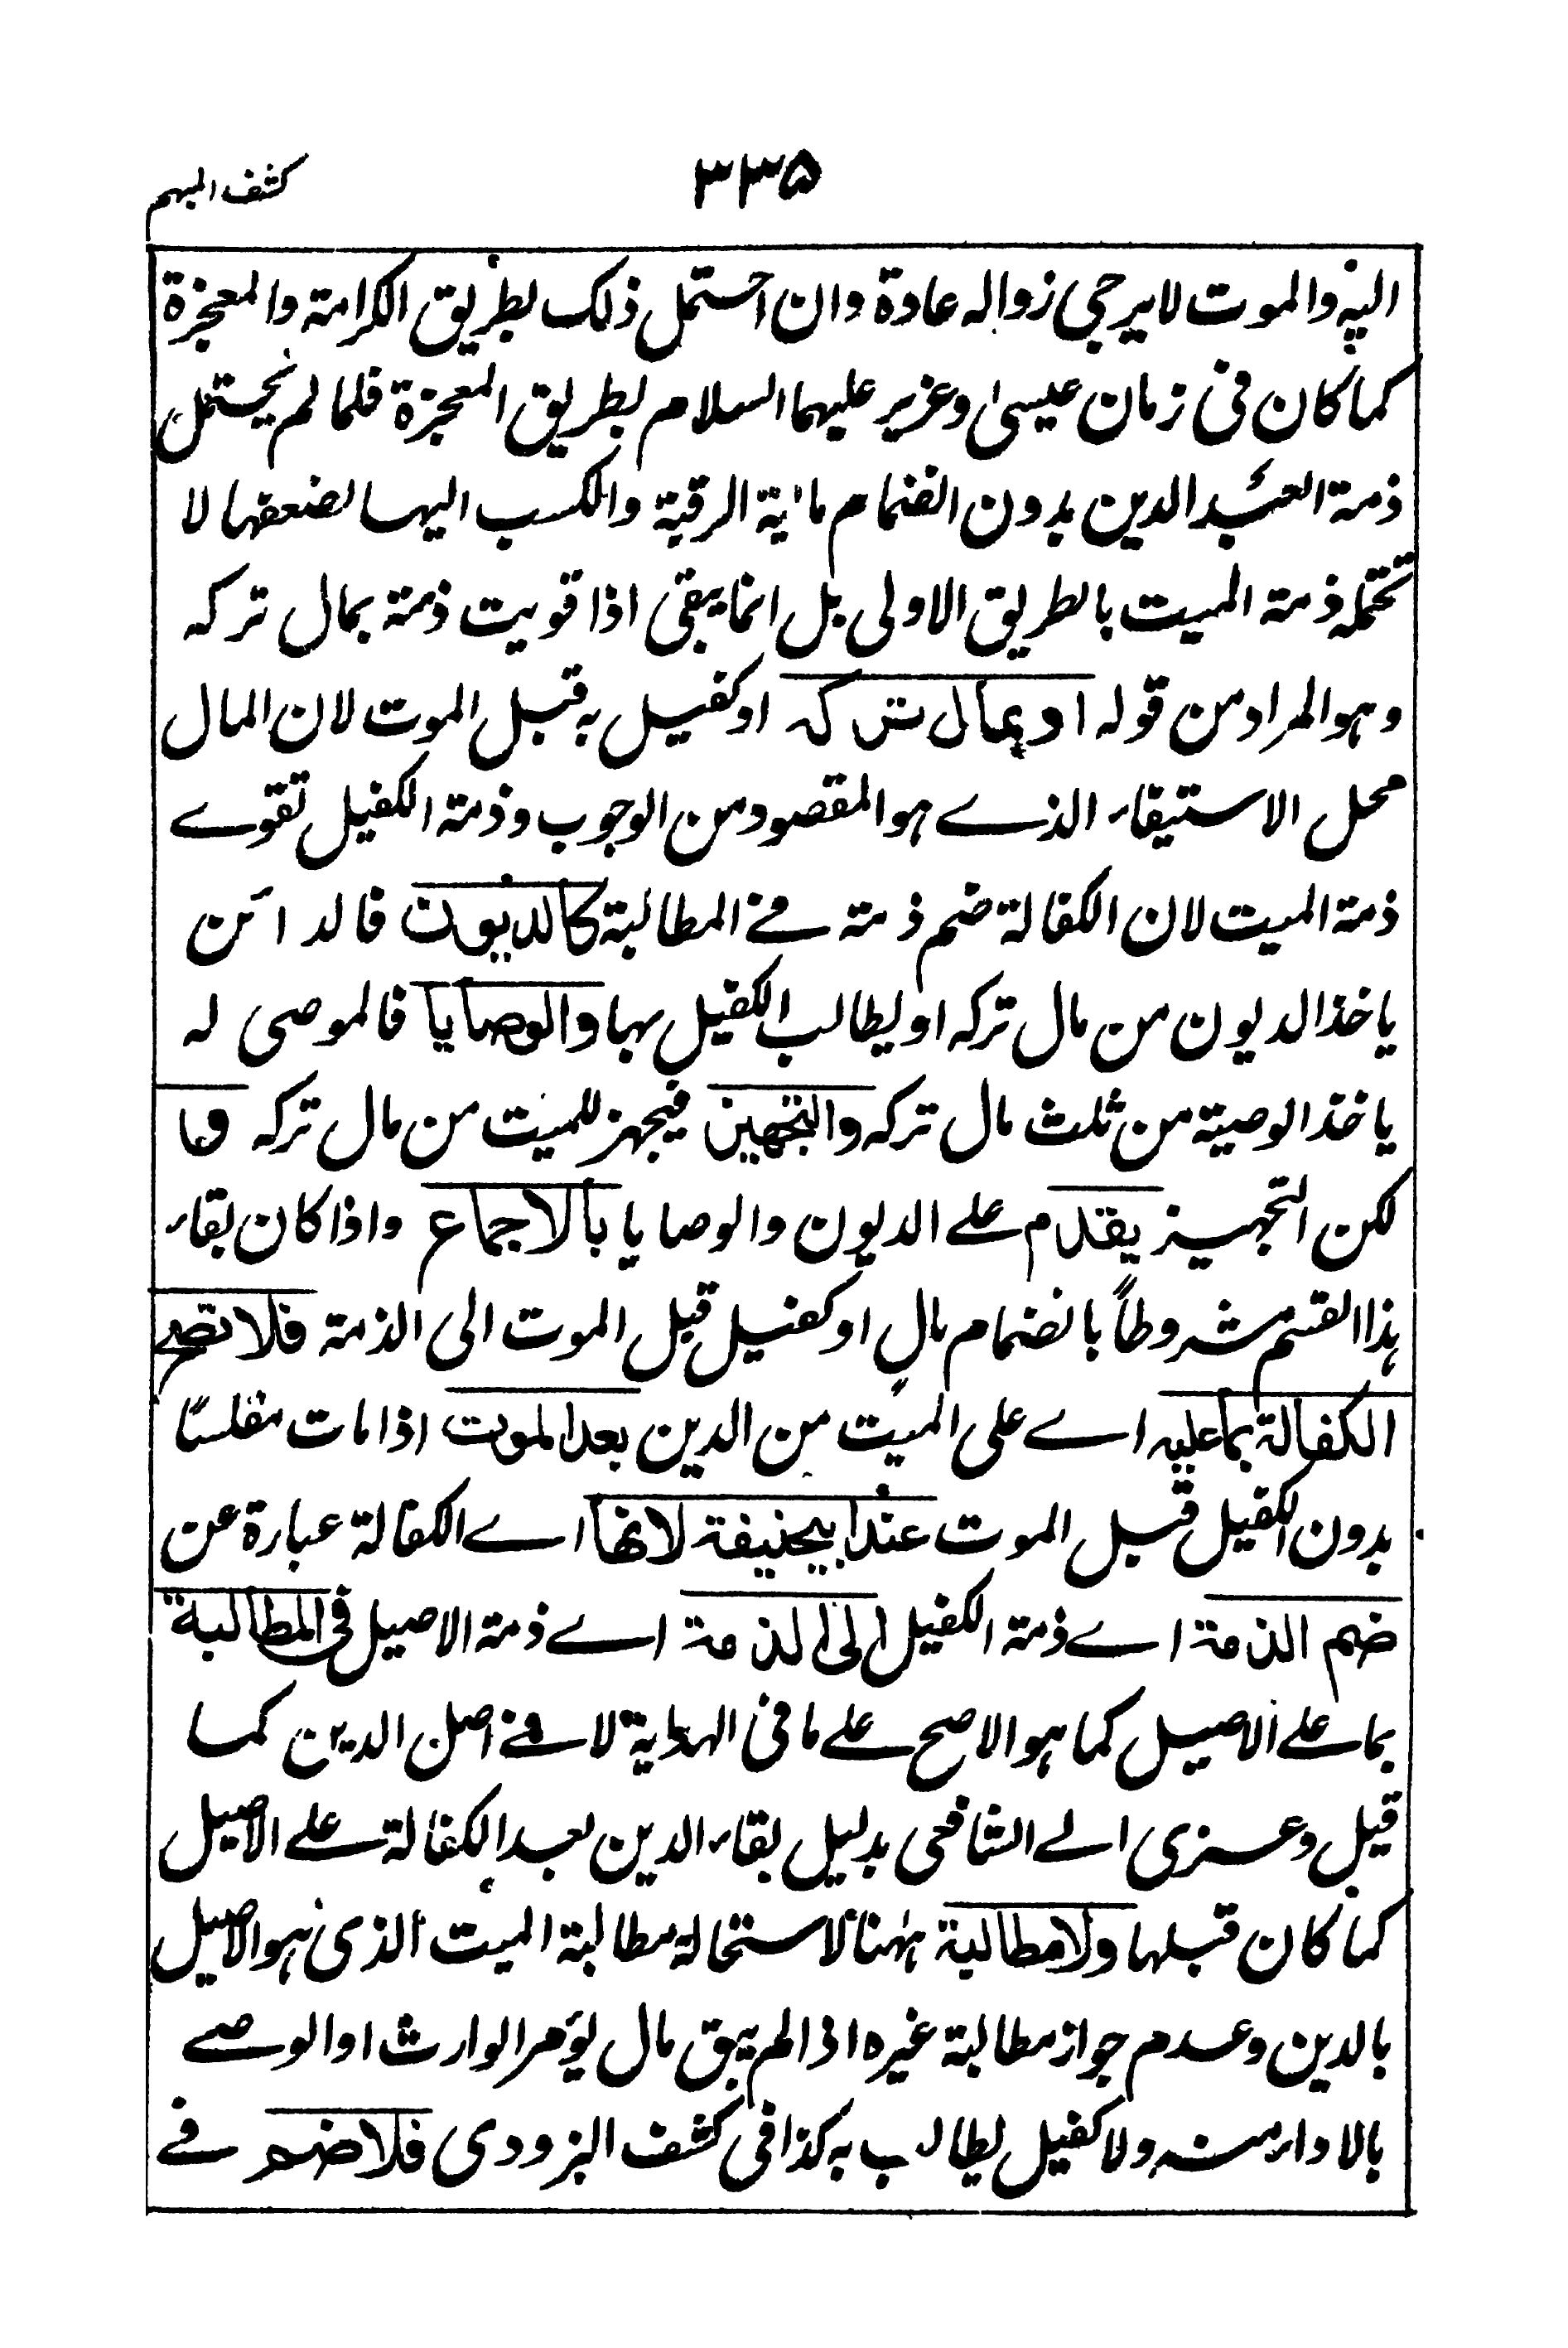 كشف المبهم
٣٣٥
اليه والموت لا يرجى زواله عادة وان احتمل ذلك بطريق الكرامة والمعجزة
كما كان فى زمان عيسىٰ وعزير عليهما السلام بطريق المعجزة فلما لم يحتمل
ذمة العبد الدين بدون انضمام مالية الرقبة والكسب اليها لضعفها لا
تحتمله ذمة الميت بالطريق الاولى بل انما يبقى اذا قويت ذمة بمال تركه
وهو المراد من قوله او بمال تركه او كفيل به قبل الموت لان المال
محل الاستيفاء الذے هو المقصود من الوجوب وذمة الكفيل تقوے
ذمة الميت لان الكفالة ضم ذمة فے المطالبة كالديون فالدائن
ياخذ الديون من مال تركه او يطالب الكفيل بها والوصايا فالموصى له
ياخذ الوصية من ثلث مال تركه والتجهيز فيجهز للميت من مال تركه وما
لكن التجهيز يقدم علے الديون والوصايا بالاجماع واذا كان بقاء
هذا القسم مشروطاً بانضمام مال او كفيل قبل الموت الى الذمة فلا تصح
الكفالة بما عليه اے على الميت من الدين بعد الموت اذا مات مفلسًا
بدون الكفيل قبل الموت عند ابيحنيفة لانها اے الكفالة عبارة عن
ضم الذمة اے ذمة الكفيل الى الذمة اے ذمة الاصيل فى المطالبة
بما علے الاصيل كما هو الاصح علے ما فى الهداية لا فے اصل الدين كما
قيل وعزى الے الشافعى بدليل بقاء الدين بعد الكفالة علے الاصيل
كما كان قبلها ولا مطالبة ههنا لاستحالة مطالبة الميت الذى هو الاصيل
بالدين وعدم جواز مطالبة غيره اذا لم يبق مال يؤمر الوارث او الوصے
بالاداء منه ولا كفيل يطالب به كذا فى كشف البزدوى فلا ضم فے